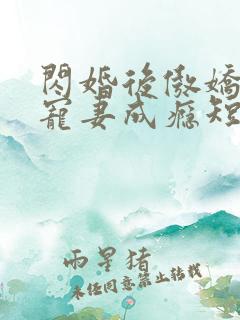 閃婚後傲嬌
寵妻成癮短
雨星猪
未经同意禁止转载